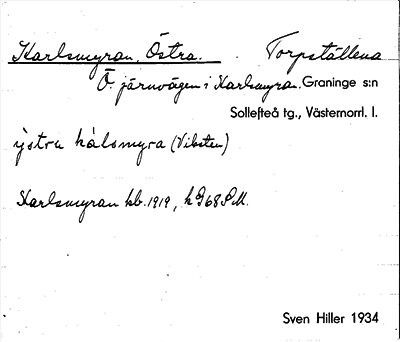 Karlsmyran, Östra. Torpställena
Ö. järnvägen i Karlsmyran. Graninge s:n
Sollefteå tg., Västernorrl. l.
ýstra kálsmyra (Vibsten)
Karlsmyran kb. 1919,
Sven Hiller 1934